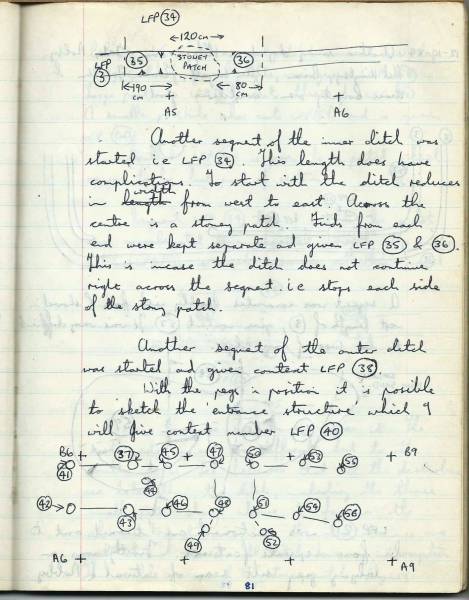 LFP 34
120cm
LFP 3
35
STONEY PATCH
36
190 cm
80 cm
A5
A6
Another segment of the inner ditch was
started i.e LFP 34. This length does have
complications. To start with the ditch reduces
in length width from west to east. Across the
centre is a stoney patch. Finds from each
end were kept separate and given LFP 35 & 36.
This is incase the ditch does not continue
right across the segment. i.e stops each side
of the stony patch.
Another segment of the outer ditch
was started and given context LFP 38.
With the pegs in position it is possible
to sketch the 'entrance structure' which I
will give context number LFP 40
B6 37 45 47 50 53 55 B9
41 44
42 43 46 48 51 54 56
49 52
A6 A9
81